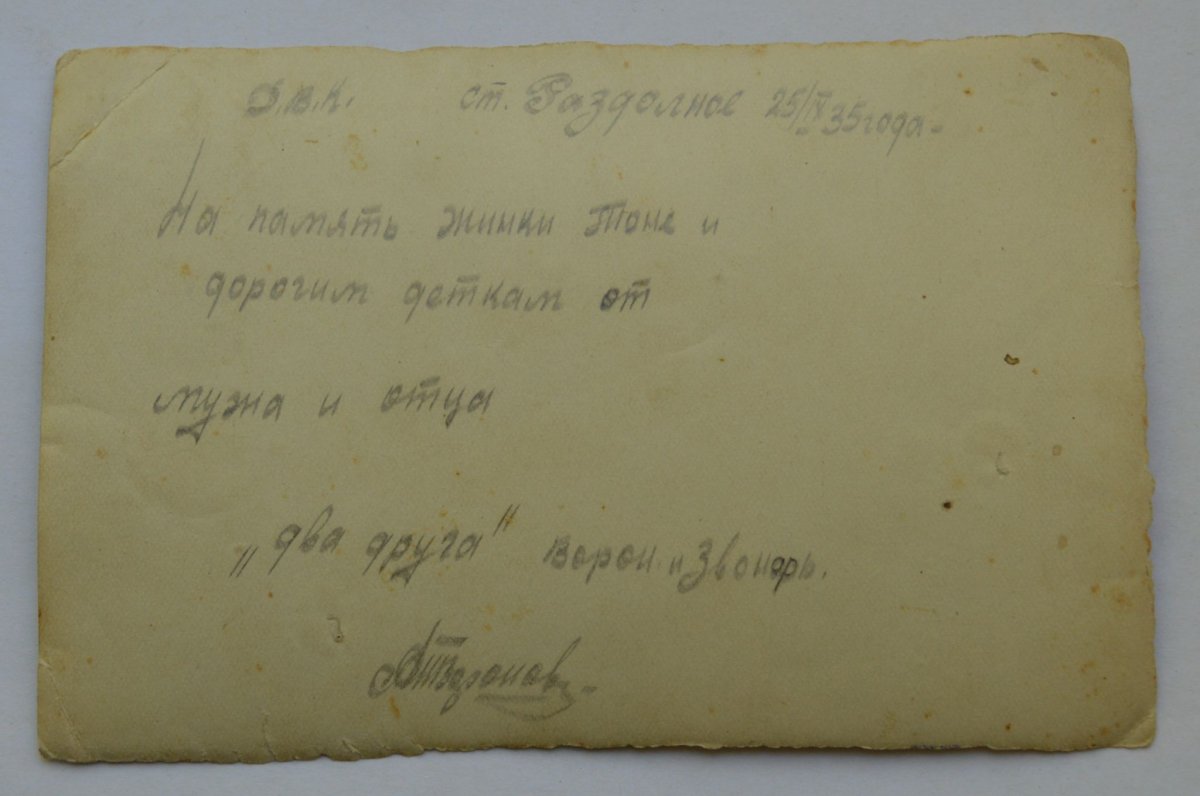 Д.В.К. ст. Раздолное 25/IV 35 года-
На память жинки Тоне и
дорогим деткам от
мужа и отца
„два друга" Ворон и Звонарь.